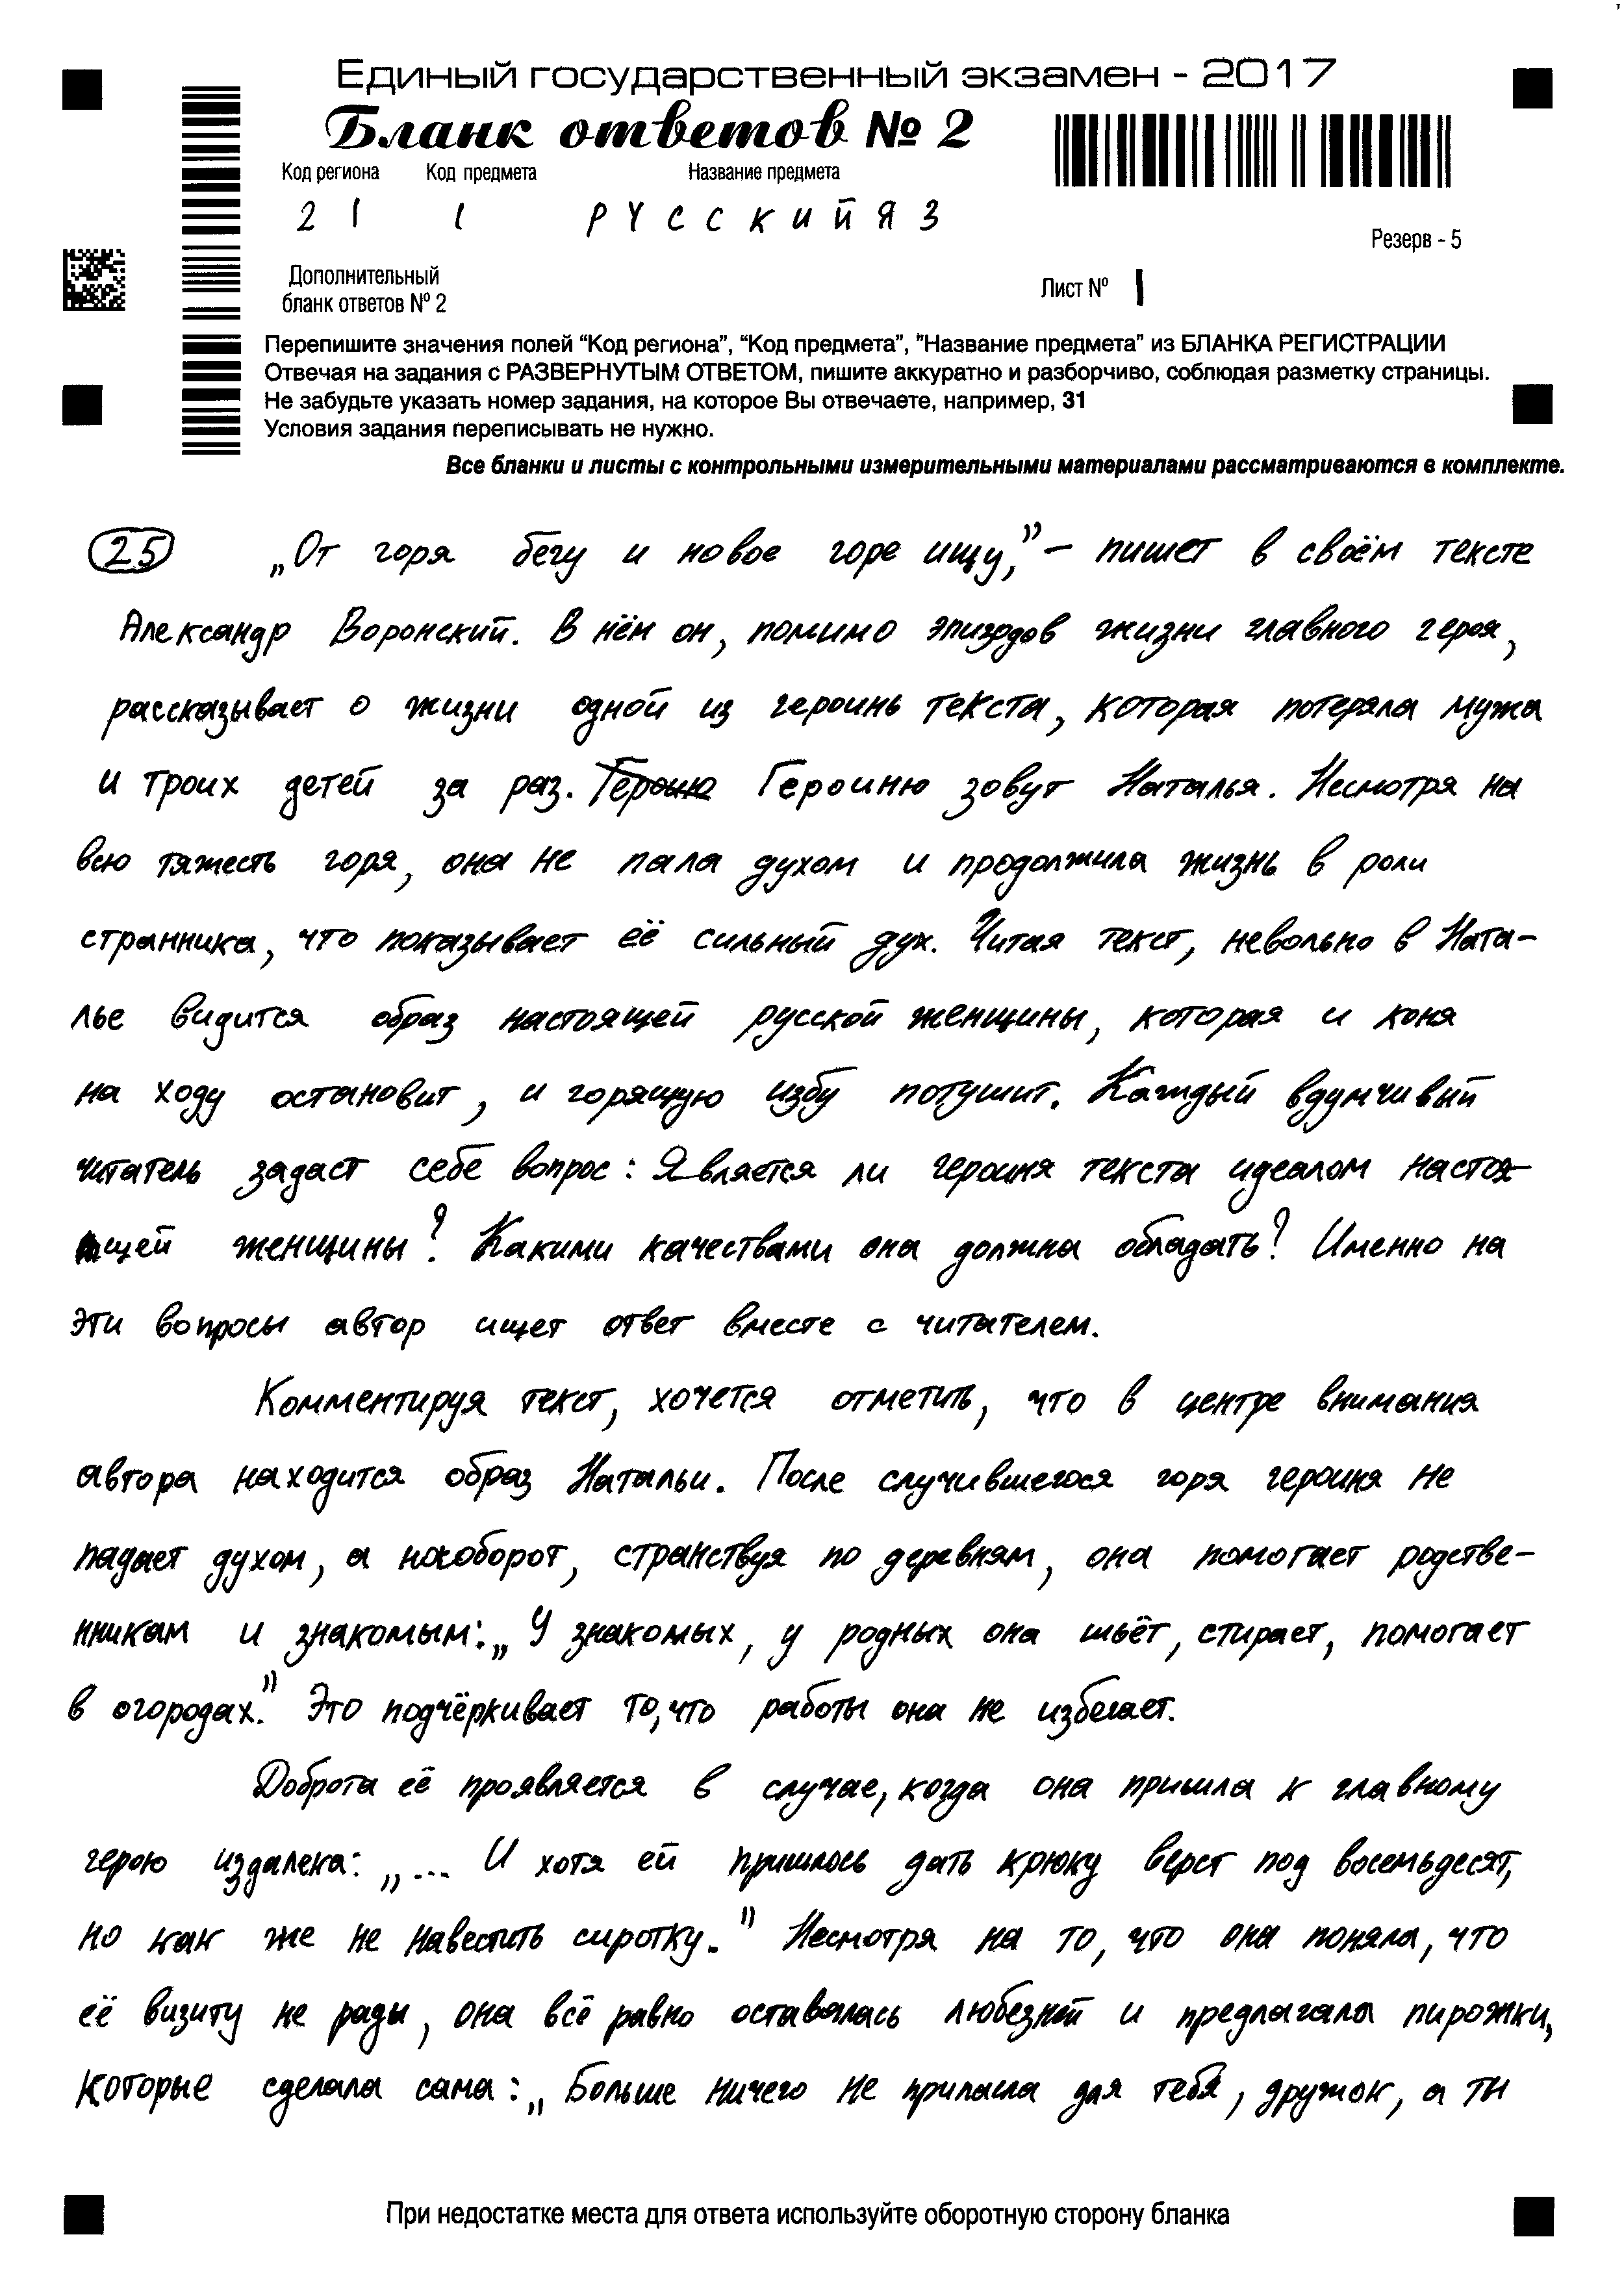 Единый государственный экзамен - 2017
Бланк ответов № 2
Код региона Код предмета Название предмета
2 1 1 Р У С С К И Й Я З
Резерв - 5
Дополнительный
бланк ответов № 2
Лист № 1
Перепишите значения полей “Код региона”, “Код предмета”, "Название предмета" из БЛАНКА РЕГИСТРАЦИИ
Отвечая на задания с РАЗВЕРНУТЫМ ОТВЕТОМ, пишите аккуратно и разборчиво, соблюдая разметку страницы.
Не забудьте указать номер задания, на которое Вы отвечаете, например, 31
Условия задания переписывать не нужно.
Все бланки и листы с контрольными измерительными материалами рассматриваются в комплекте.
25 „От горя бегу и новое горе ищу,” – пишет в своём тексте
Александр Воронский. В нём он, помимо эпизодов жизни главного героя,
рассказывает о жизни одной из героинь текста, которая потеряла мужа
и троих детей за раз. Героиню зовут Наталья. Несмотря на
всю тяжесть горя, она не пала духом и продолжила жизнь в роли
странника, что показывает её сильный дух. Читая текст, невольно в Ната-
лье видится образ настоящей русской женщины, которая и коня
на ходу остановит, и горящую избу потушит. Каждый вдумчивый
читатель задаст себе вопрос: Является ли героиня текста идеалом настоя-
щей женщины? Какими качествами она должна обладать? Именно на
эти вопросы автор ищет ответ вместе с читателем.
Комментируя текст, хочется отметить, что в центре внимания
автора находится образ Натальи. После случившегося горя героиня не
падает духом, а наоборот, странствуя по деревням, она помогает родстве-
нникам и знакомым: „У знакомых, у родных она шьёт, стирает, помогает
в огородах.” Это подчёркивает то, что работы она не избегает.
Доброта её проявляется в случае, когда она пришла к главному
герою издалека: „... И хотя ей пришлось дать крюку верст под восемьдесят,
но как же не навестить сиротку.” Несмотря на то, что она поняла, что
её визиту не рады, она всё равно оставалась любезной и предлагала пирожки,
которые сделала сама: „Больше ничего не припасла для тебя, дружок, а ты
При недостатке места для ответа используйте оборотную сторону бланка